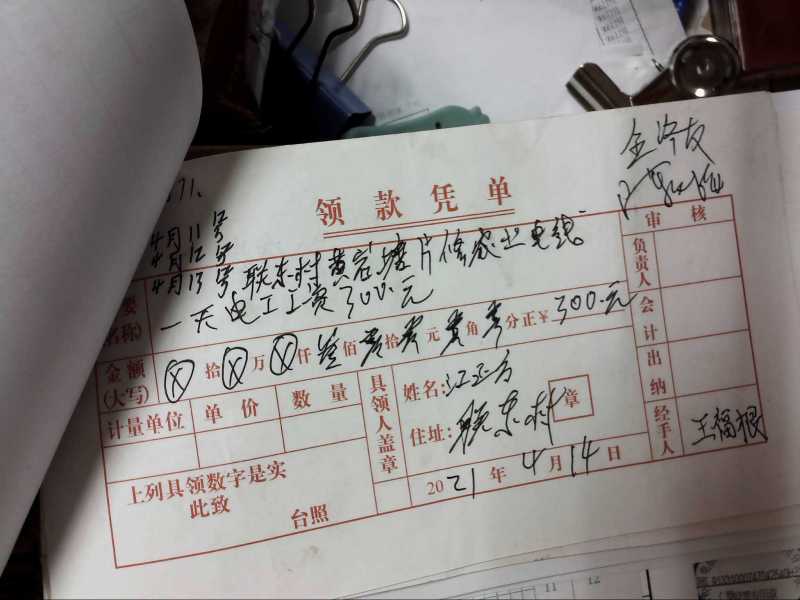 71.
领款凭单
4月11号
4月12号
4月13号 联东村黄岩塘片修农业电线
一天电工工资300.元
要
名称)
金额
(大写)
拾 万 仟 叁佰 零拾 零元 零角 零分正¥ 300.元
计量单位 单价 数量
具领人盖章
姓名:江正方
住址:联东村
章
上列具领数字是实
此致
台照
2021年4月14日
审核
负责人
会计
出纳
经手人
王福根